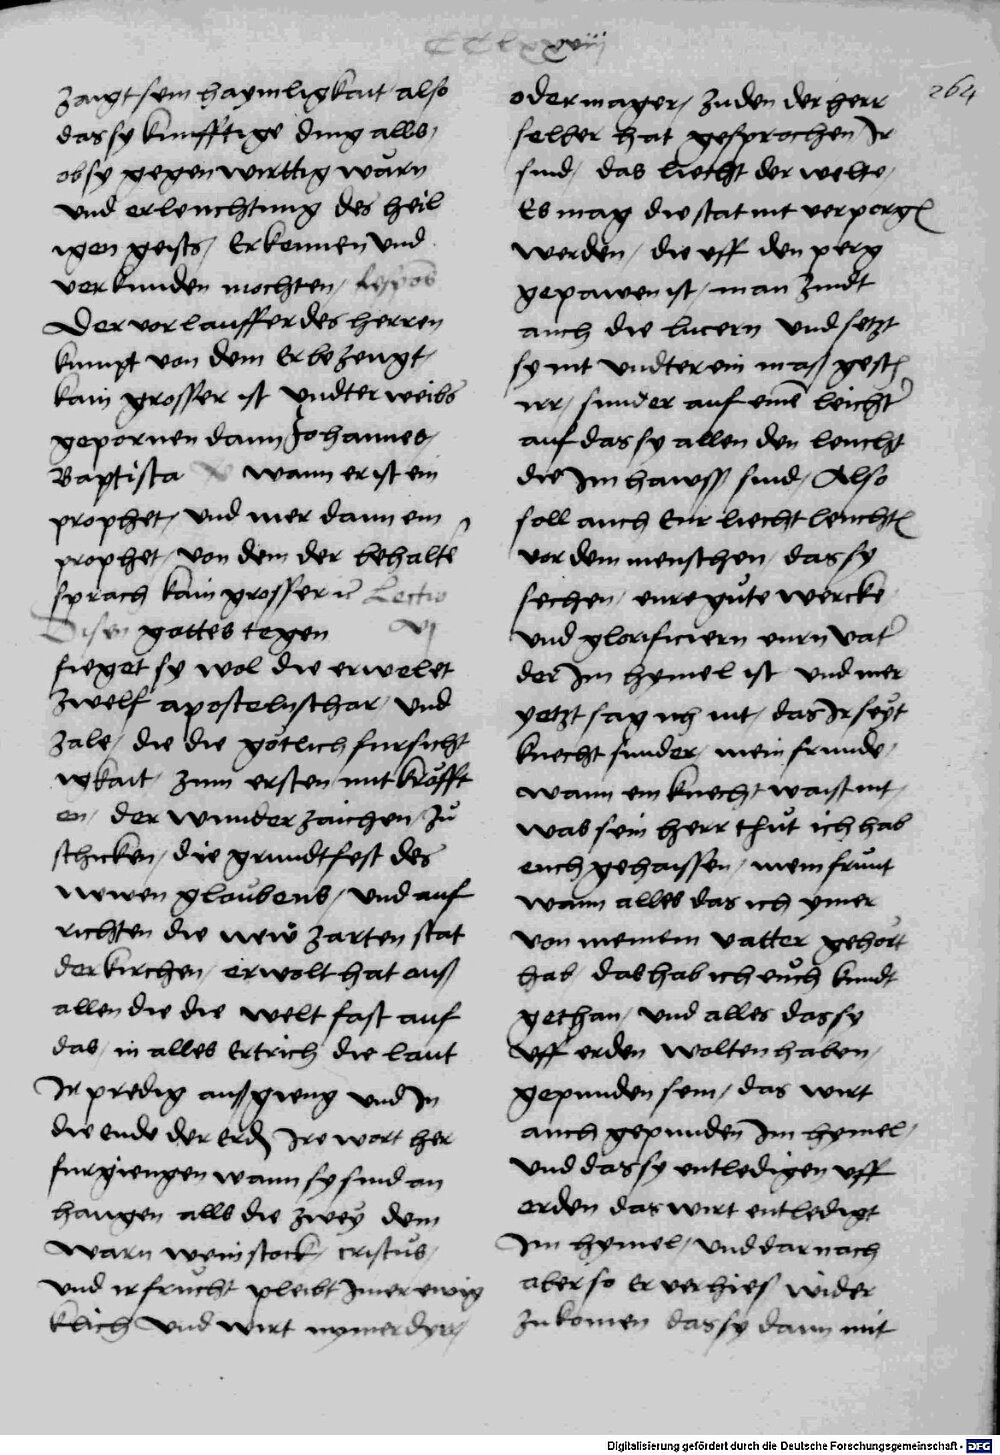 CClxxviii
264
zaigt sein haymligkait also
das sy kunfftige ding alls,
ob sy gegenwirttig wärn
und erleuchtung des heil
igen geists, Erkennen und
verkunden mochten, Respons
Der vorlauffer des herren
kumpt von dem Er bezeugt,
kain grosser ist undter weibs
gepornen dann Johannes,
Baptista V wann er ist ein
prophet, und mer dann ein
prophet, von dem der behaltē
sprach kain grosser ꝛc Lectio
Disen gottes tegen vj
fieget sy wol die erwelet
zwelf apostelnschar, und
zale, die die götlich fursicht
igkait, zum ersten mit kröfft
en, der wunderzaichen, zů
schicken, die grundtfest des
newen glaubens, und auf
richten die new zarten stat
der kirchen, erwolt hat auß
allen die die welt fast auf
das, in alles Ertrich die laut
Ir predig außgieng und In
die ende der Erd Ire wort her
furgiengen wann sy sind an
hangen alls die zwey dem
warn weinstock, cristus,
und ir frucht pleibt Imer ewig
klich und wirt nymer dyrr,
oder mager, zu den der herr
selber hat gesprochen Ir
sind, das liecht der welte,
Es mag die stat nit verporgen
werden, die uff den perg
gepawen ist, man zindt
auch die lucern und setzt
sy nit undter ein maß gesch
irr, sunder auf einē leichter
auf das sy allen den leucht
die Im hawss sind, Also
soll auch Eur liecht leuchten
vor dem menschen, das sy
sechen, eure gůte wercke
und glorificiern eurn vater
der Im hymel ist und mer
yetzt sag ich nit, das Ir seyt
knecht sunder, mein frunde,
wann ein knecht waist nit,
was sein herr thůt ich hab
euch gehaissen, mein frunt
wann alles das ich ymer
von meinem vatter gehört
hab, das hab ich eůch kundt
gethan, und alles das sy
uff erden wolten haben,
gepunden sein, das wirt
auch gepunden Im hymel,
und das sy entledigen uff
erden das wirt entledigt
Im hymel, und darnach
aber so Er verhies wider
zukomen das sy dann mit
Digitalisierung gefördert durch die Deutsche Forschungsgemeinschaft - DFG